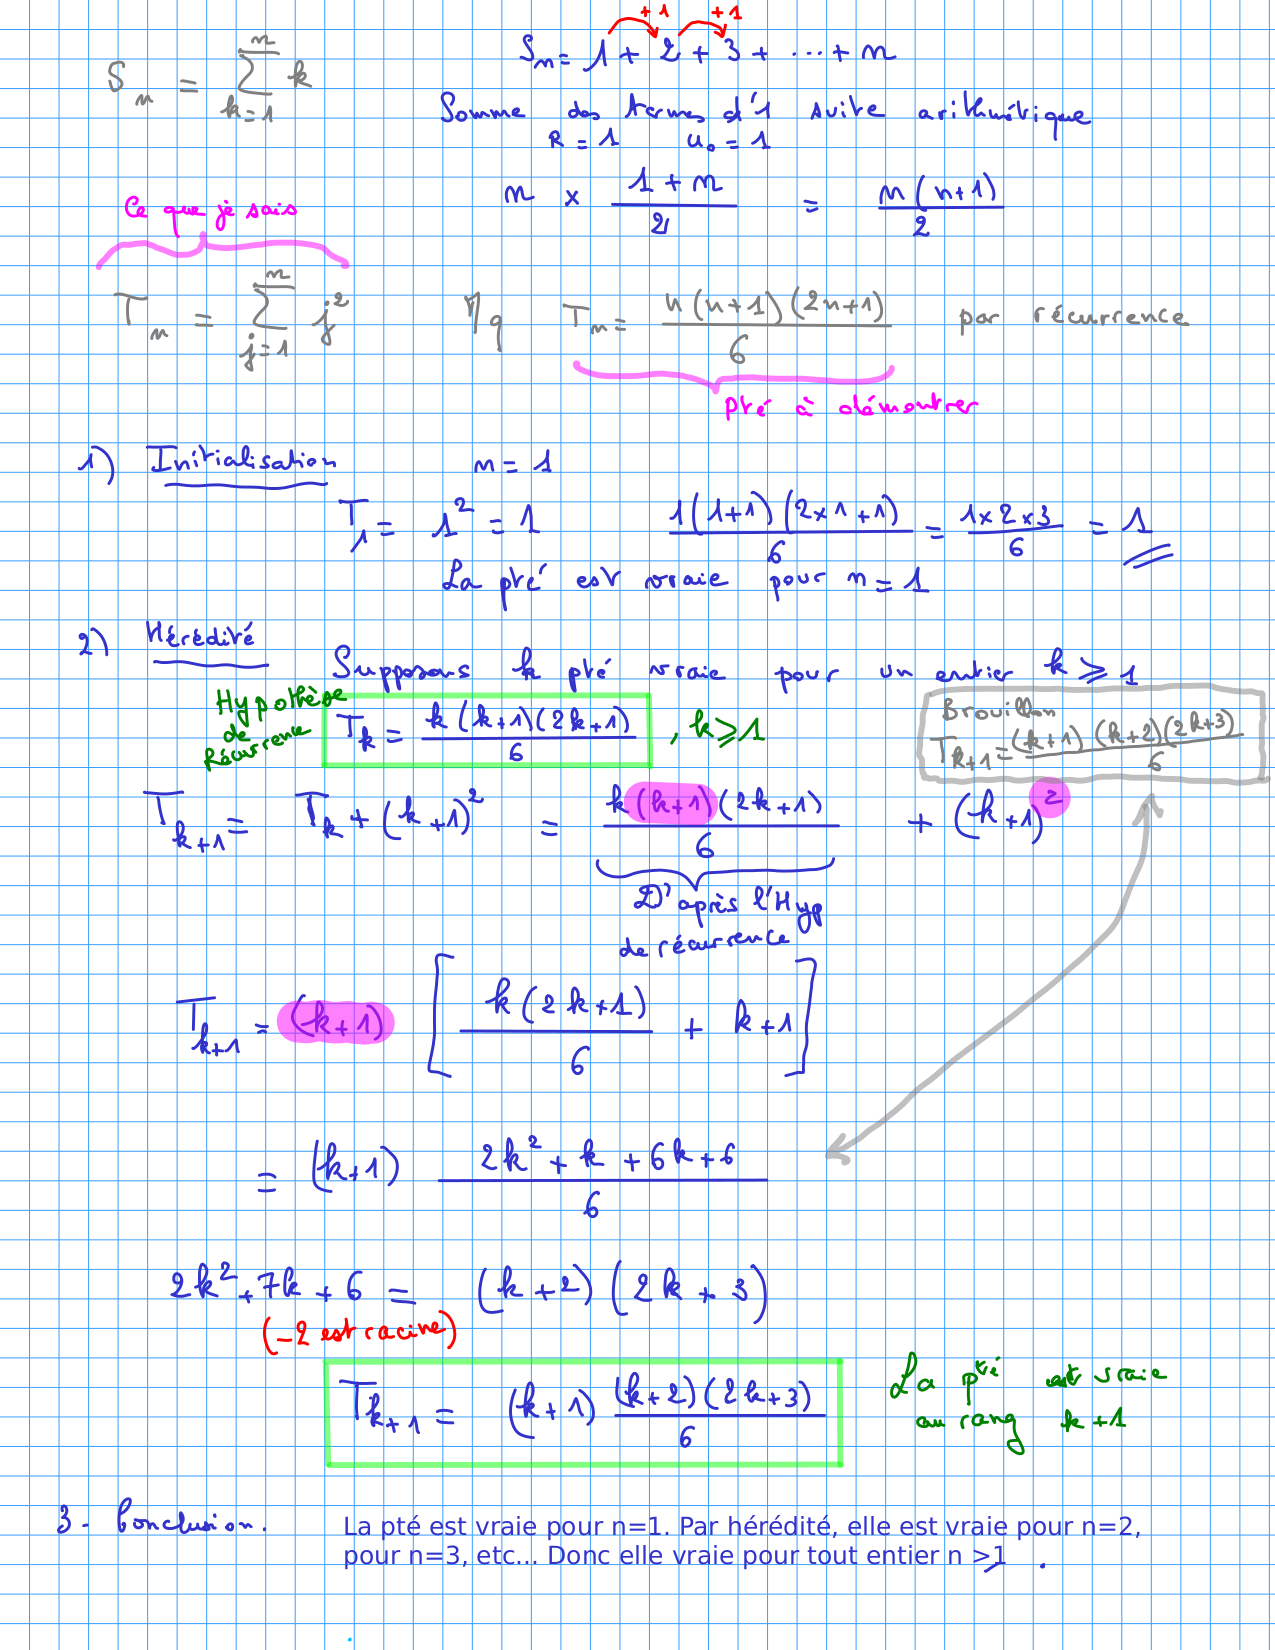 +1 +1
S_n = ∑_{k=1}^{n} k
S_n = 1 + 2 + 3 + ... + n
Somme des termes d'1 suite arithmétique
R = 1 u_0 = 1
n × (1 + n)/2 = n(n+1)/2
Ce que je sais
T_n = ∑_{j=1}^{n} j² Mq T_n = n(n+1)(2n+1)/6 par récurrence
pté à démontrer
1) Initialisation n = 1
T_1 = 1² = 1 1(1+1)(2×1+1)/6 = 1×2×3/6 = 1
La pté est vraie pour n = 1
2) Hérédité
Supposons k pté vraie pour un entier k ⩾ 1
Hypothèse
de
Récurrence
T_k = k(k+1)(2k+1)/6 , k ⩾ 1
Brouillon
T_{k+1} = (k+1)(k+2)(2k+3)/6
T_{k+1} = T_k + (k+1)² = k(k+1)(2k+1)/6 + (k+1)²
D'après l'Hyp
de récurrence
T_{k+1} = (k+1) [ k(2k+1)/6 + k+1 ]
= (k+1) (2k² + k + 6k + 6)/6
2k² + 7k + 6 = (k+2)(2k+3)
(-2 est racine)
T_{k+1} = (k+1) (k+2)(2k+3)/6
La pté est vraie
au rang k+1
3- Conclusion.
La pté est vraie pour n=1. Par hérédité, elle est vraie pour n=2,
pour n=3, etc... Donc elle vraie pour tout entier n ⩾1 .